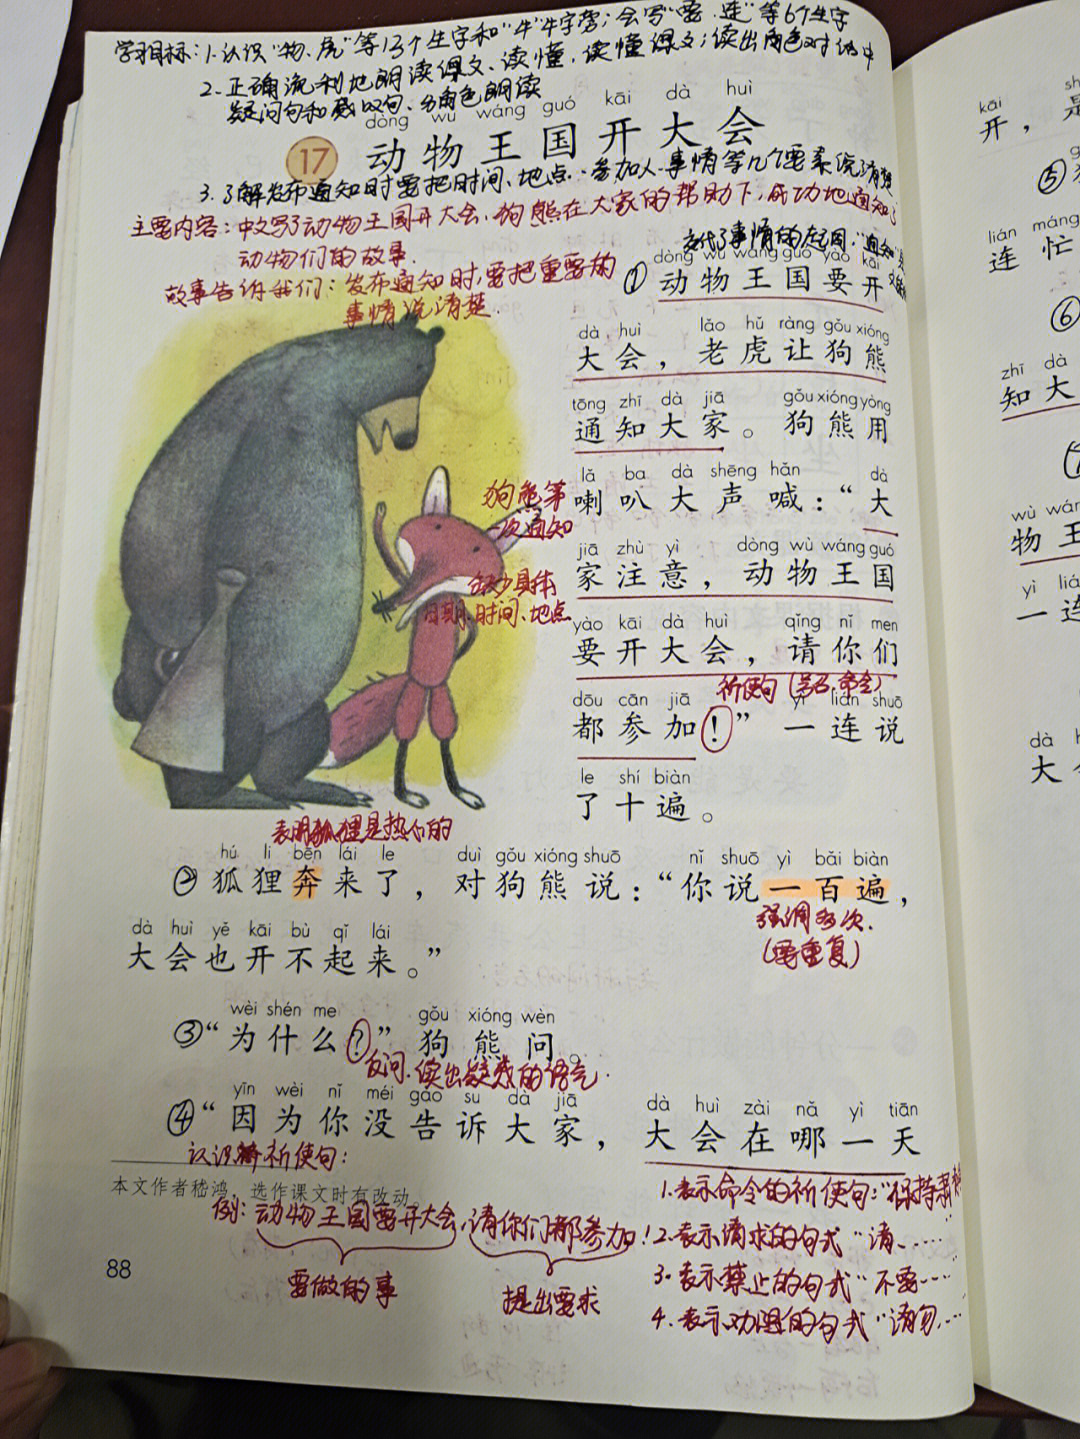 学习目标：1.认识“物、虎”等13个生字和“牛”牛字旁；会写“要、连”等6个生字
2.正确流利地朗读课文、读懂，读懂课文；读出角色对话中
疑问句和感叹句、分角色朗读
dòng wù wáng guó kāi dà huì
17 动物王国开大会
3.了解发布通知时要把时间、地点、参加人、事情等几个要素说清楚
主要内容：中文写了动物王国开大会，狗熊在大家的帮助下，成功地通知了
动物们的故事.
交代了事情的起因.“通知”
故事告诉我们：发布通知时，要把重要的
事情说清楚.
dòng wù wáng guó yào kāi
① 动物王国要开
dà huì lǎo hǔ ràng gǒu xióng
大会，老虎让狗熊
tōng zhī dà jiā gǒu xióng yòng
通知大家。狗熊用
lǎ ba dà shēng hǎn dà
喇叭大声喊：“大
狗熊第
一次通知
jiā zhù yì dòng wù wáng guó
家注意，动物王国
缺少具体
日期、时间、地点
yào kāi dà huì qǐng nǐ men
要开大会，请你们
祈使句（号召、命令）
dōu cān jiā yì lián shuō
都参加！”一连说
le shí biàn
了十遍。
表明狐狸是热心的
hú li bēn lái le duì gǒu xióng shuō nǐ shuō yì bǎi biàn
② 狐狸奔来了，对狗熊说：“你说一百遍，
强调多次.
（要重复）
dà huì yě kāi bù qǐ lái
大会也开不起来。”
wèi shén me gǒu xióng wèn
③“为什么？”狗熊问。
反问.读出疑惑的语气.
yīn wèi nǐ méi gào su dà jiā dà huì zài nǎ yì tiān
④“因为你没告诉大家，大会在哪一天
认识祈使句：
本文作者嵇鸿，选作课文时有改动。
例：动物王国要开大会，请你们都参加！
要做的事 提出要求
1.表示命令的祈使句：“保持肃静
2.表示请求的句式“请……
3.表示禁止的句式“不要……
4.表示劝阻的句式“请勿……
88
kāi
开，是
⑤
lián máng
连忙
⑥
zhī dà
知大
wù wáng
物王
yì lián
一连
dà
大